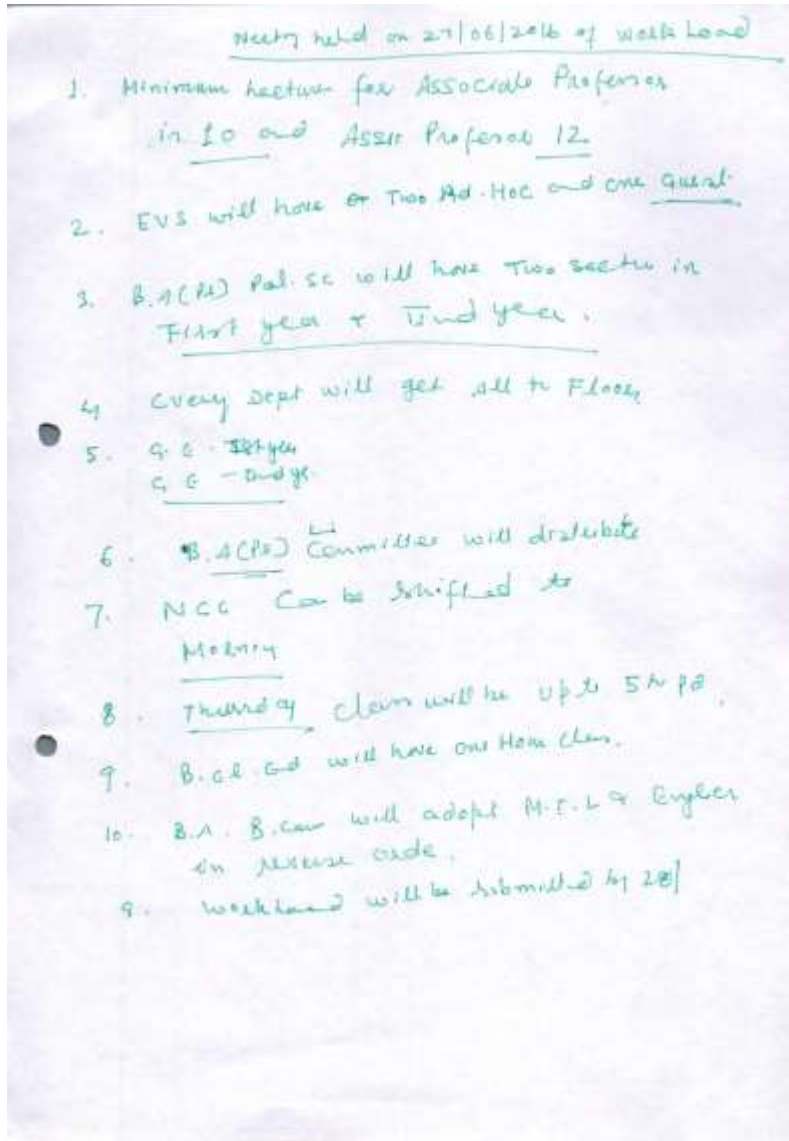 held on 27/06/2016 of Work Load
1. Minimum Lecture for Associate Professor
in 10 and Asstt Professor 12.
2. EVS will have Two Ad-Hoc and one Guest
3. B.A(P) Pol. Sc will have Two section in
First year + IInd year.
4 Every Dept will get all the Floor
5. G.E - Ist year
G E - IInd yr.
6. B.A(P) Committee will distribute
7. NCC Can be Shifted to
Morning
8. Thursday Class will be up to 5th pd.
9. will have one Class.
10. B.A. B.Com will adopt M.I.L & English
in reverse orde.
9. Workload will be submitted by 28/